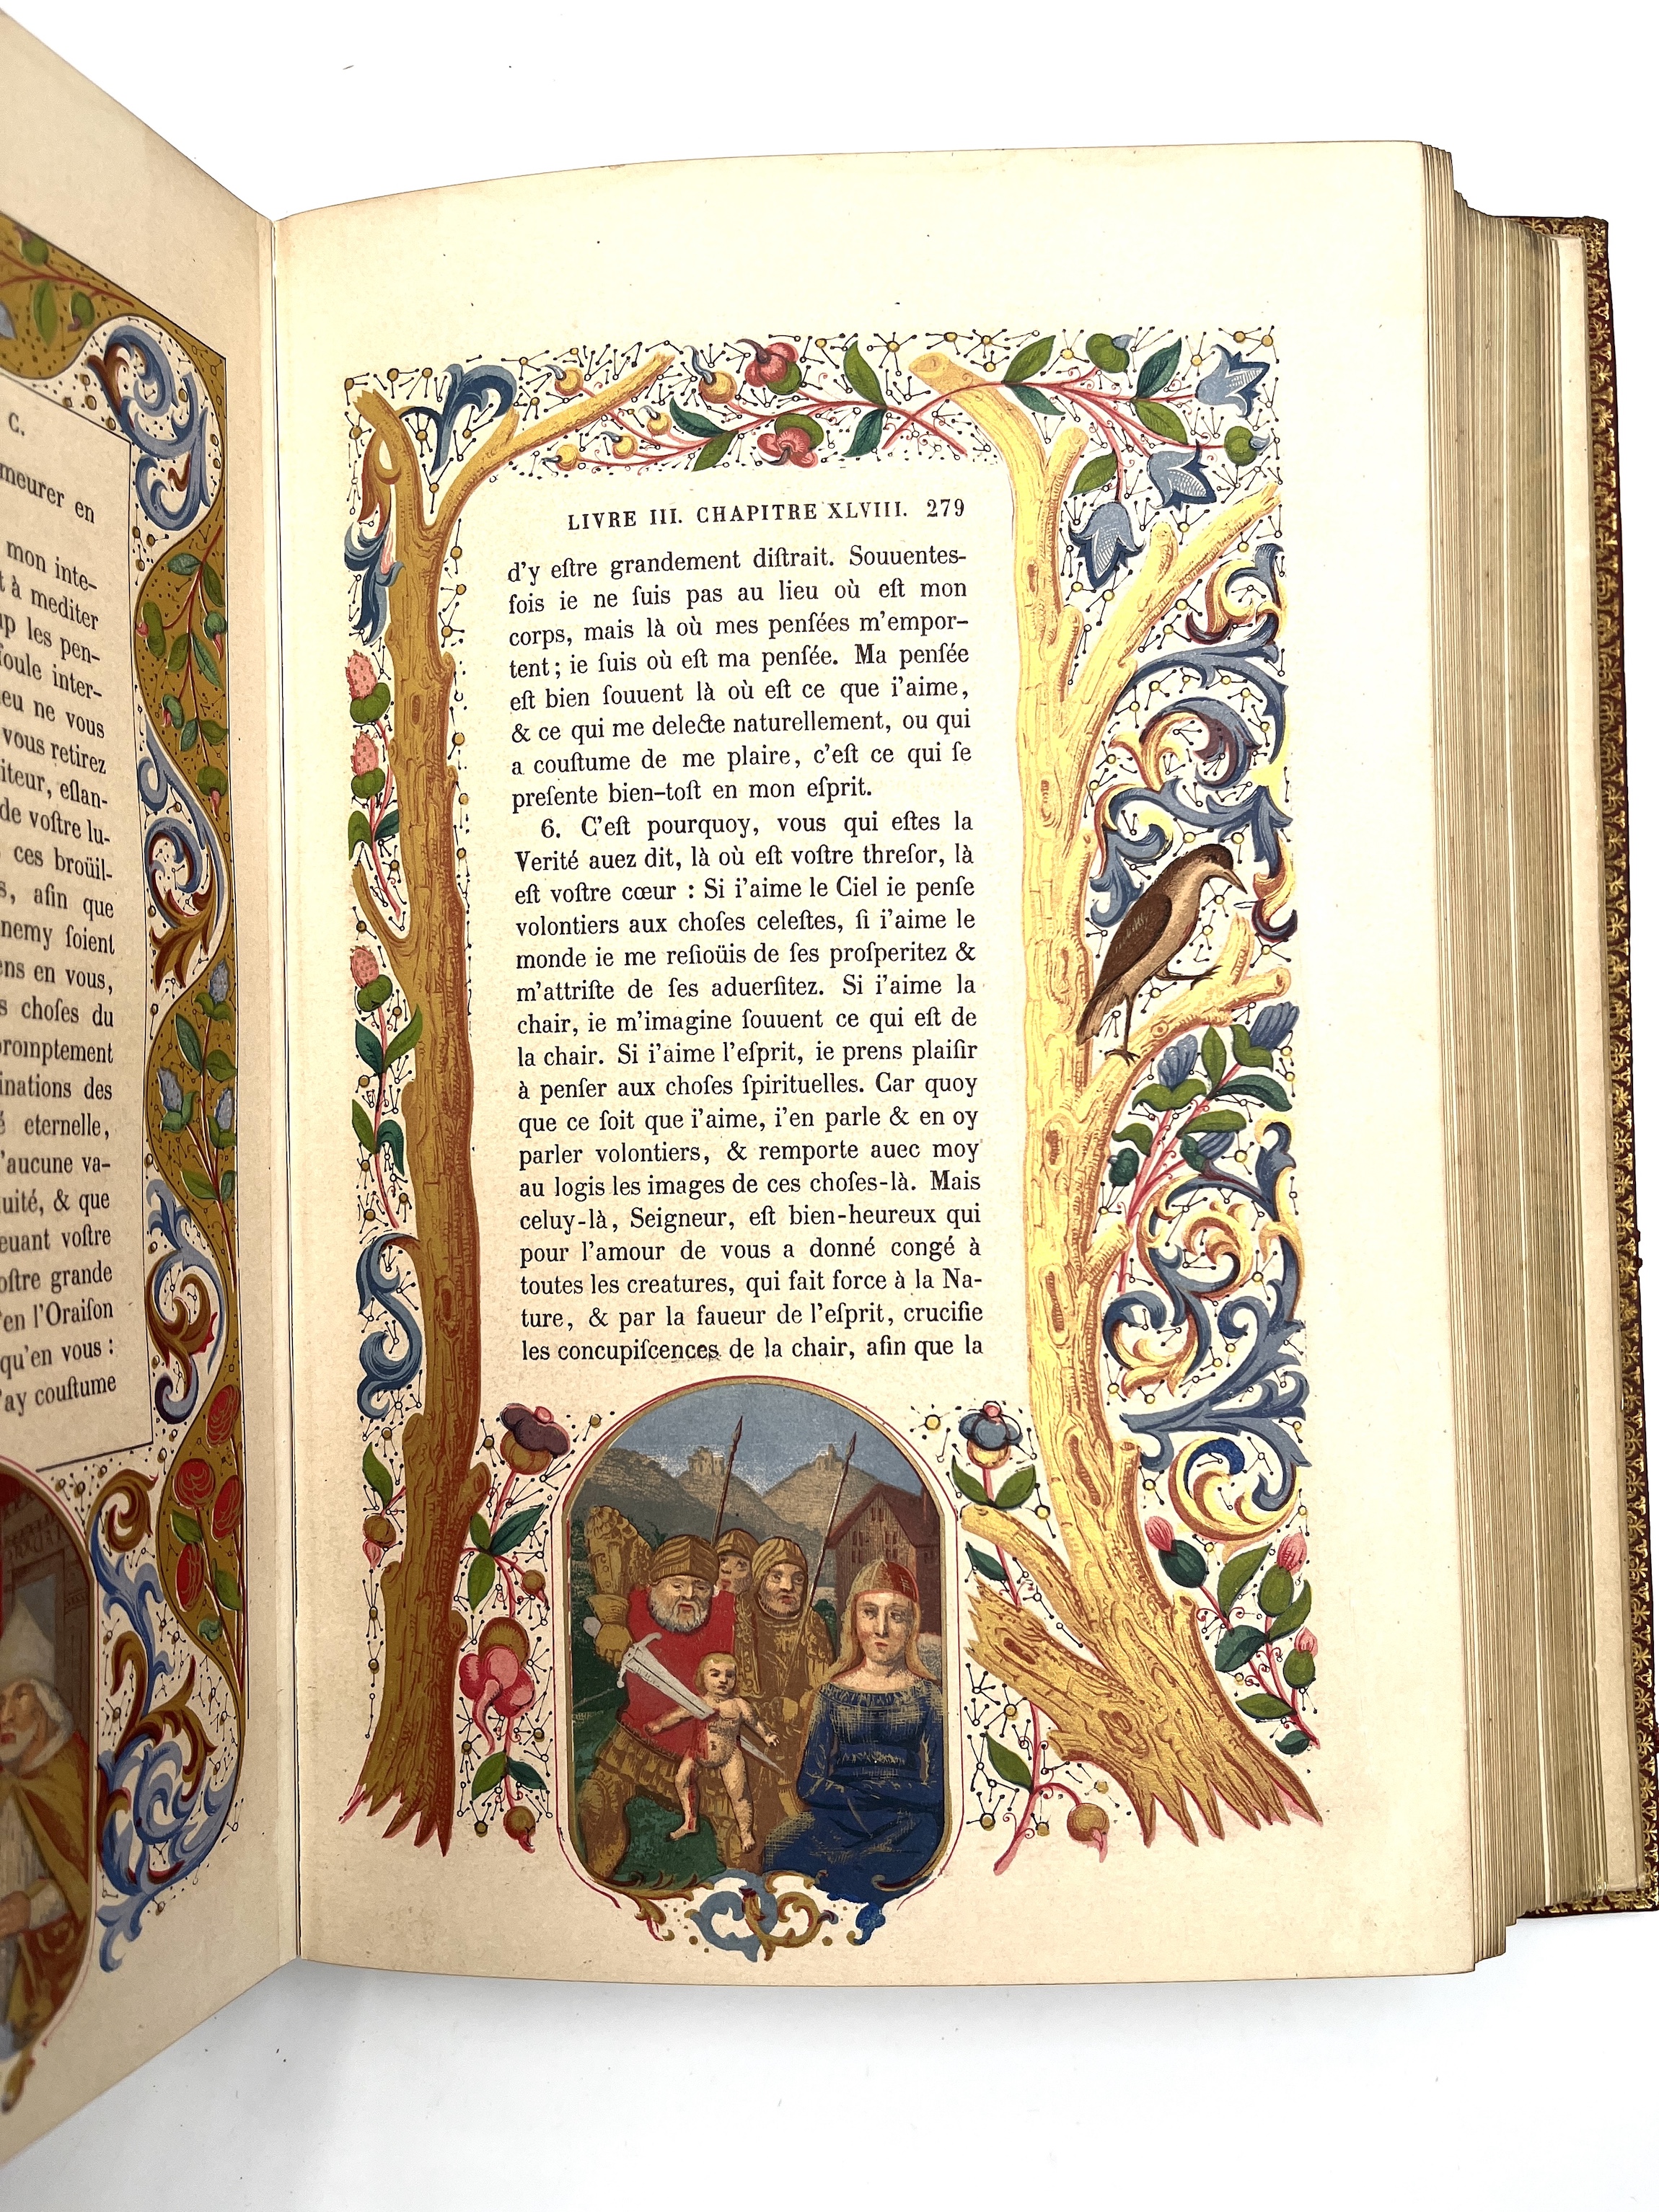 C.
meurer en
mon inte-
t à mediter
up les pen-
foule inter-
eu ne vous
vous retirez
iteur, eſlan-
de voſtre lu-
ces broüil-
s, afin que
nemy ſoient
ens en vous,
s choſes du
promptement
inations des
é eternelle,
'aucune va-
uité, & que
euant voſtre
oſtre grande
'en l'Oraiſon
qu'en vous :
'ay couſtume
LIVRE III. CHAPITRE XLVIII. 279
d'y eſtre grandement diſtrait. Souuentes-
fois ie ne ſuis pas au lieu où eſt mon
corps, mais là où mes penſées m'empor-
tent ; ie ſuis où eſt ma penſée. Ma penſée
eſt bien ſouuent là où eſt ce que i'aime,
& ce qui me delecte naturellement, ou qui
a couſtume de me plaire, c'eſt ce qui ſe
preſente bien-toſt en mon eſprit.
6. C'eſt pourquoy, vous qui eſtes la
Verité auez dit, là où eſt voſtre threſor, là
eſt voſtre cœur : Si i'aime le Ciel ie penſe
volontiers aux choſes celeſtes, ſi i'aime le
monde ie me reſioüis de ſes proſperitez &
m'attriſte de ſes aduerſitez. Si i'aime la
chair, ie m'imagine ſouuent ce qui eſt de
la chair. Si i'aime l'eſprit, ie prens plaiſir
à penſer aux choſes ſpirituelles. Car quoy
que ce ſoit que i'aime, i'en parle & en oy
parler volontiers, & remporte auec moy
au logis les images de ces choſes-là. Mais
celuy-là, Seigneur, eſt bien-heureux qui
pour l'amour de vous a donné congé à
toutes les creatures, qui fait force à la Na-
ture, & par la faueur de l'eſprit, crucifie
les concupiſcences de la chair, afin que la